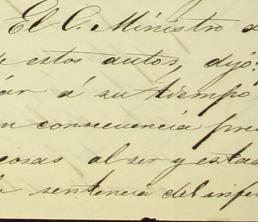 El C. Ministro
estos autos, dijo:
á su tiempo
consecuencia
cosas al ser y estad
sentencia del infer